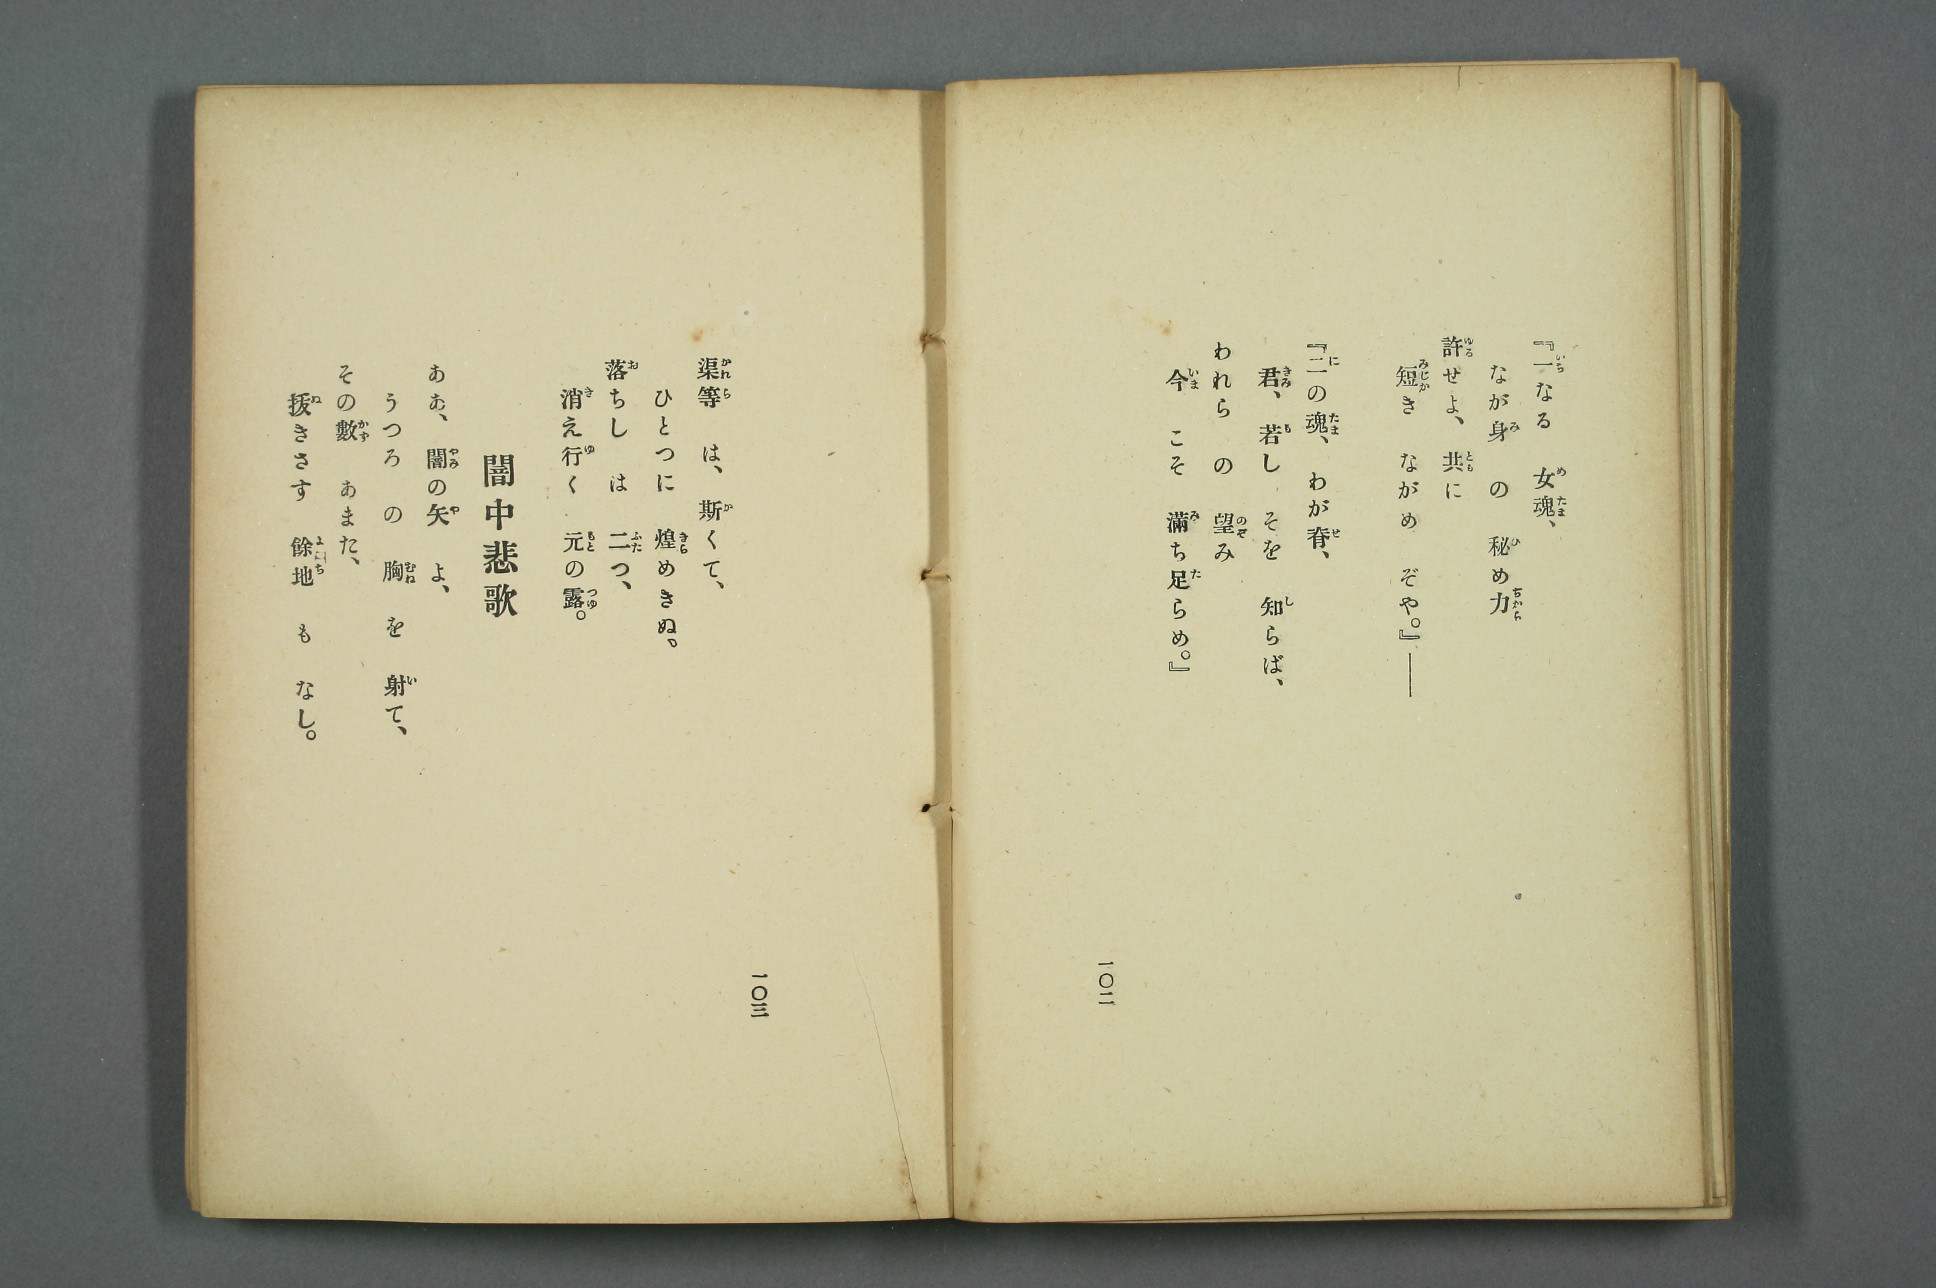 『一なる　女魂、
ながが身　の　秘め力
許せよ、　共に
短き　ながめ　ぞや。』――
『二の魂、　わが脊、
君、　若し　そを　知らば、
われら　の　望み
今　こそ　滿ち足らめ。』
一〇二
渠等　は、　斯くて、
ひとつに　煌めきぬ。
落ちし　は　二つ、
消え行く　元の露。
闇中悲歌
あゝ、　闇の矢　よ、
うつろ　の　胸　を　射て、
その數　あまた、
拔きさす　餘地　も　なし。
一〇三